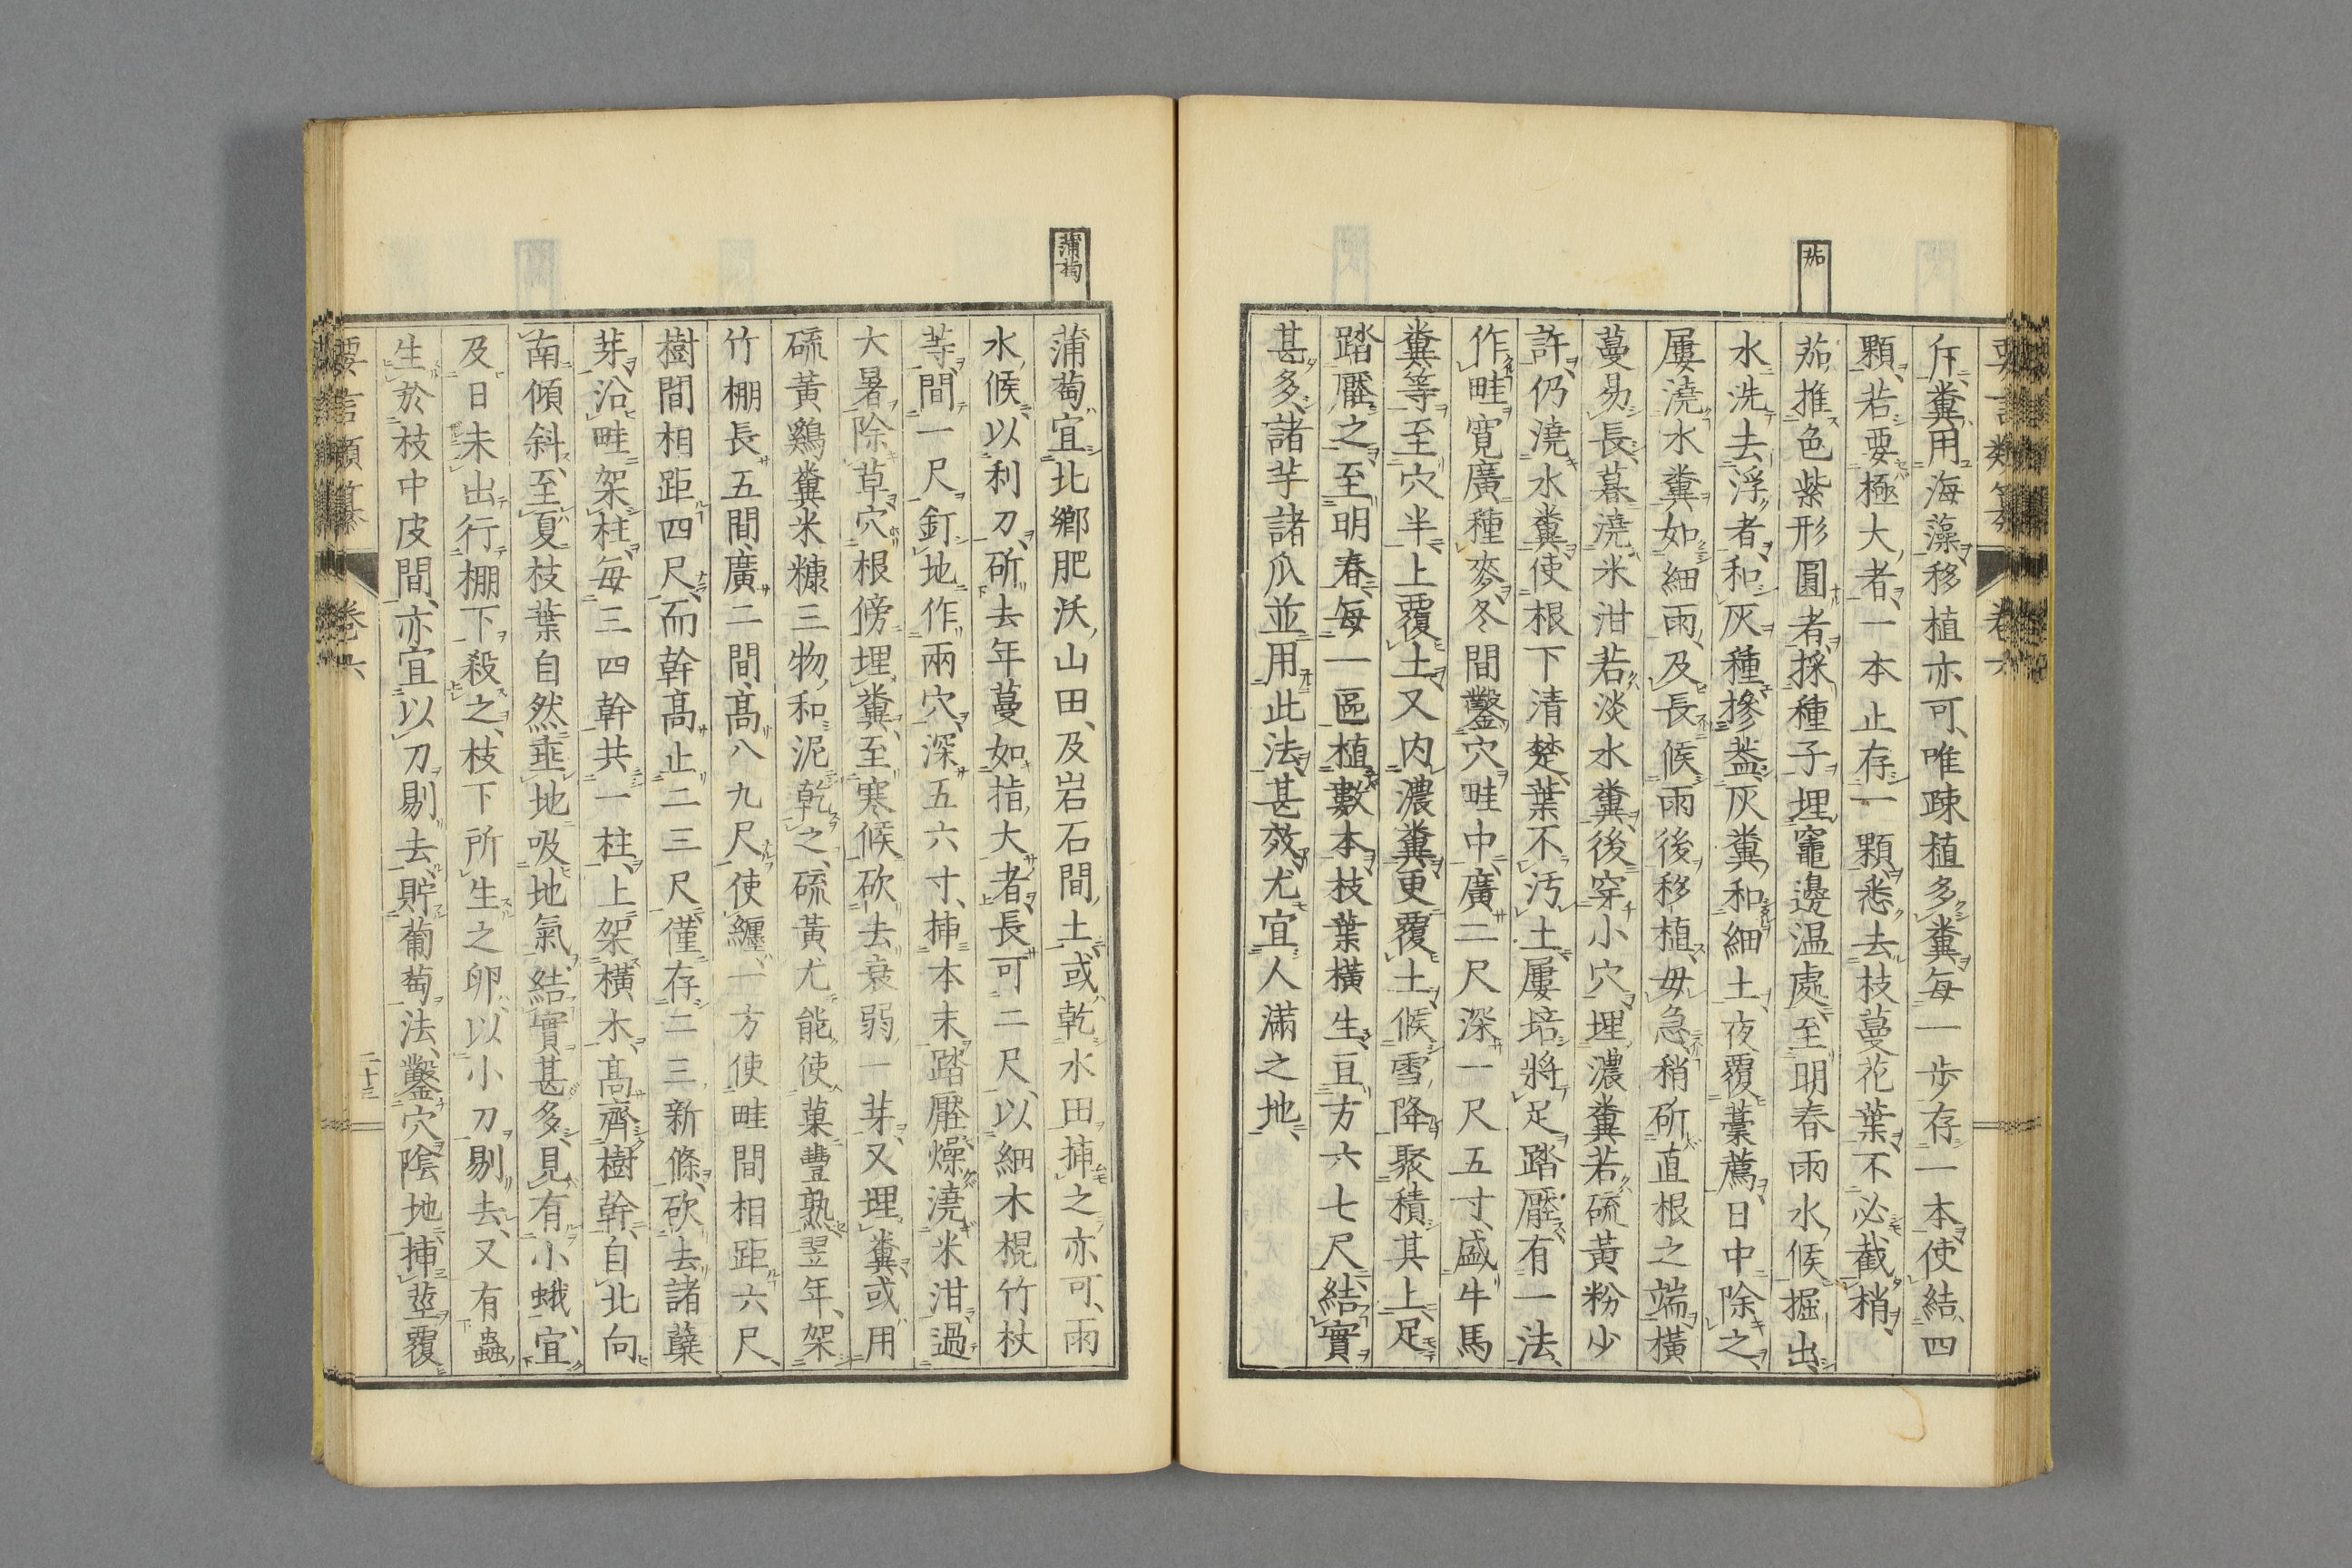 要言類纂 卷六
斥、糞用海藻移植亦可、唯疎植多糞每一步存一本、使結四
顆、若要極大者、一本止存一顆、悉去枝蔓花葉、不必截梢、
茄
茄、推色紫形圓者、採種子埋竈邊温處、至明春雨水、候掘出、
水洗去浮者、和灰種摻、盖灰糞、和細土、夜覆藁薦、日中除之、
屢澆水糞如細雨、及長候雨後移植、毋急、稍斫直根之端橫
蔓易長、暮澆米泔若淡水糞、後穿小穴、埋濃糞若硫黃粉少
許、仍澆水糞、使根下清楚、葉不汚土、屢培將足踏壓、有一法、
作畦寛廣種麥、冬間鑿穴畦中、廣二尺深一尺五寸、盛牛馬
糞等至穴半、上覆土、又内濃糞、更覆土、候雪降聚積其上、足
踏壓之、至明春、每一區植數本、枝葉橫生、亘方六七尺、結實
甚多、諸芋諸瓜並用此法、甚效、尤宜人滿之地、
蒲萄
蒲萄宜北鄕肥沃山田、及岩石間土、或乾水田、挿之亦可、雨
水候、以利刀斫去年蔓如指大者、長可二尺、以細木棍竹杖
等、間一尺釘地作兩穴、深五六寸、挿本末踏壓、燥澆米泔、過
大暑除草、穴根傍埋糞、至寒候砍去衰弱一芽、又埋糞、或用
硫黃鷄糞米糠三物、和泥乾之、硫黃尤能使菓豐熟、翌年、架
竹棚長五間、廣二間、高八九尺、使纏一方使畦間相距六尺、
樹間相距四尺、而幹高止二三尺、僅存二三新條、砍去諸蘖
芽、沿畦架柱、每三四幹共一柱、上架橫木、高齊樹幹、自北向
南傾斜、至夏枝葉自然垂地吸地氣、結實甚多、見有小蛾、宜
及日未出行棚下殺之、枝下所生之卵、以小刀剔去、又有蟲
生於枝中皮間、亦宜以刀剔去、貯葡萄法、鑿穴陰地、挿莖覆
要言類纂 卷六 二十三